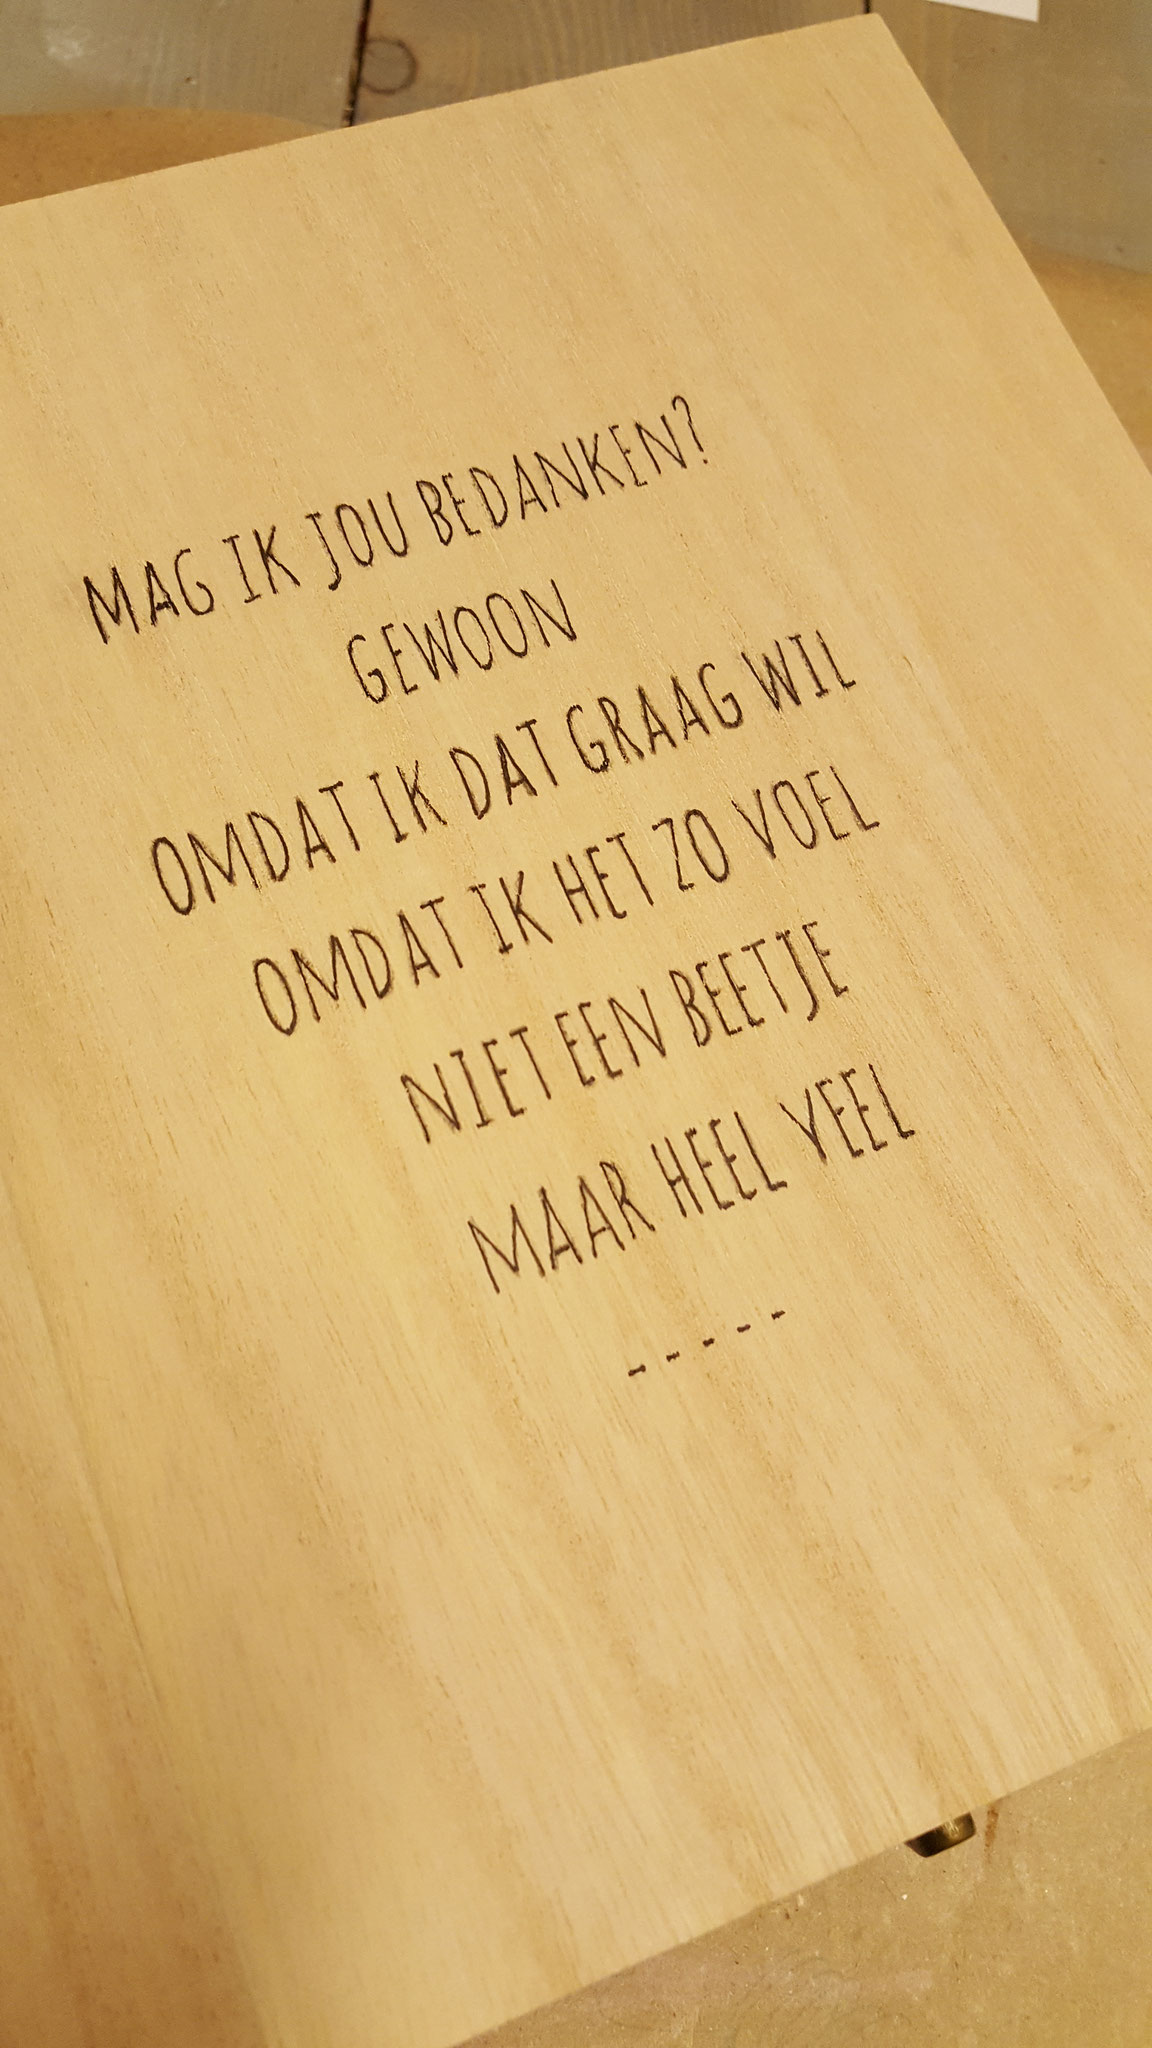 MAG IK JOU BEDANKEN?
GEWOON
OMDAT IK DAT GRAAG WIL
OMDAT IK HET ZO VOEL
NIET EEN BEETJE
MAAR HEEL VEEL
-----